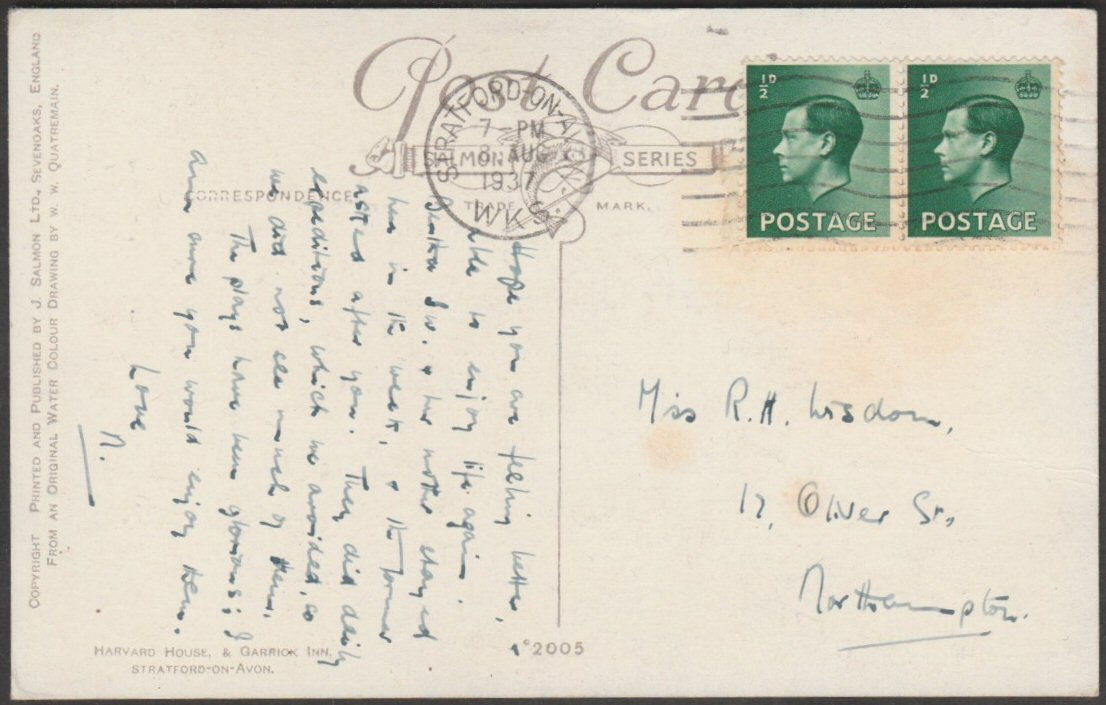 Post Card
SALMON SERIES
TRADE MARK.
CORRESPONDENCE
STRATFORD-ON-AVON
7 - PM
8 AUG
1937
WKS.
½D
POSTAGE
½D
POSTAGE
Hope you are feeling better,
able to enjoy life again.
w. & her mother stayed
here in the week, & the former
asked after you. They did daily
expeditions, which we avoided, so
we did not see much of them.
The plays have been glorious; I
am sure you would enjoy them.
Love,
N.
Miss R.H. Wisdom,
17, Oliver St.,
Northampton.
COPYRIGHT PRINTED AND PUBLISHED BY J. SALMON LTD., SEVENOAKS, ENGLAND
FROM AN ORIGINAL WATER COLOUR DRAWING BY W. W. QUATREMAIN.
HARVARD HOUSE, & GARRICK INN,
STRATFORD-ON-AVON.
2005